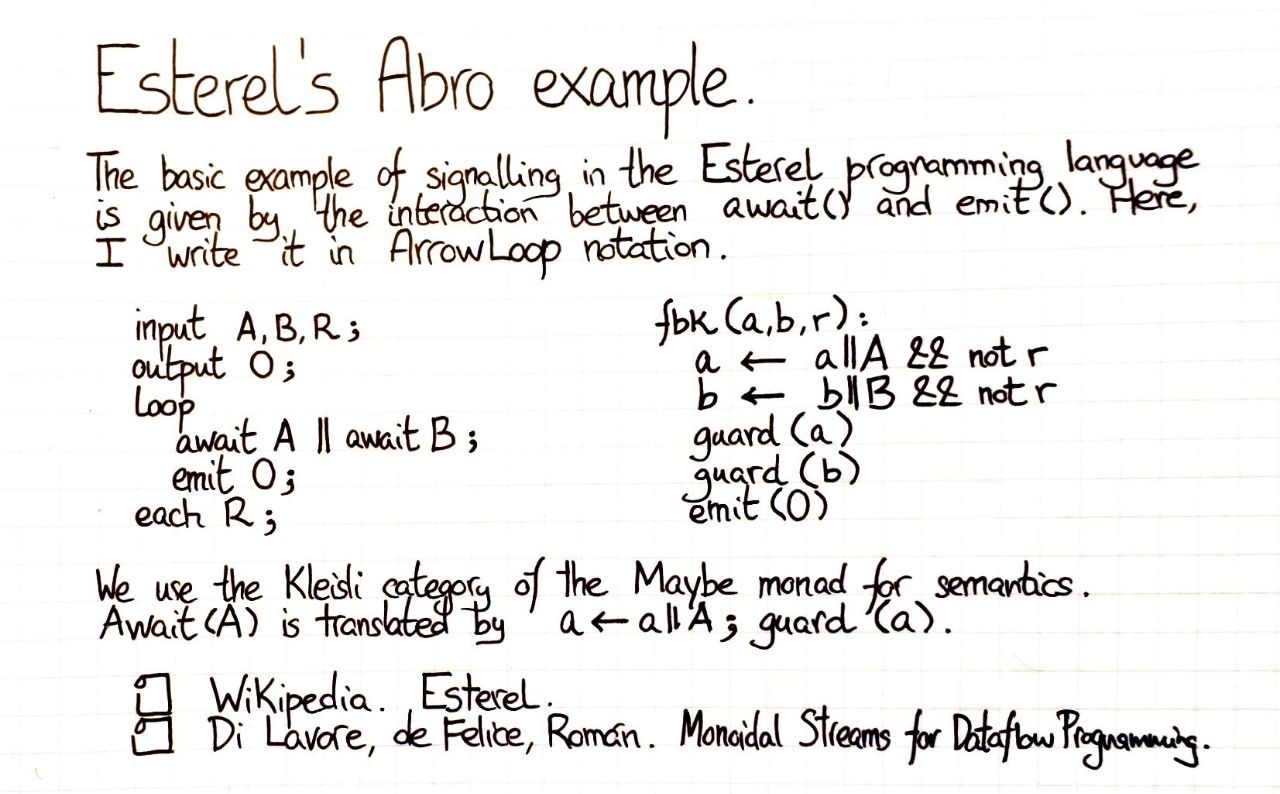 Esterel's Abro example.
The basic example of signalling in the Esterel programming language
is given by the interaction between await() and emit(). Here,
I write it in ArrowLoop notation.
input A,B,R;
output O;
Loop
await A || await B;
emit O;
each R;
fbk(a,b,r):
a ← a||A && not r
b ← b||B && not r
guard(a)
guard(b)
emit(O)
We use the Kleisli category of the Maybe monad for semantics.
Await(A) is translated by a ← a||A; guard(a).
Wikipedia. Esterel.
Di Lavore, de Felice, Román. Monoidal Streams for Dataflow Programming.